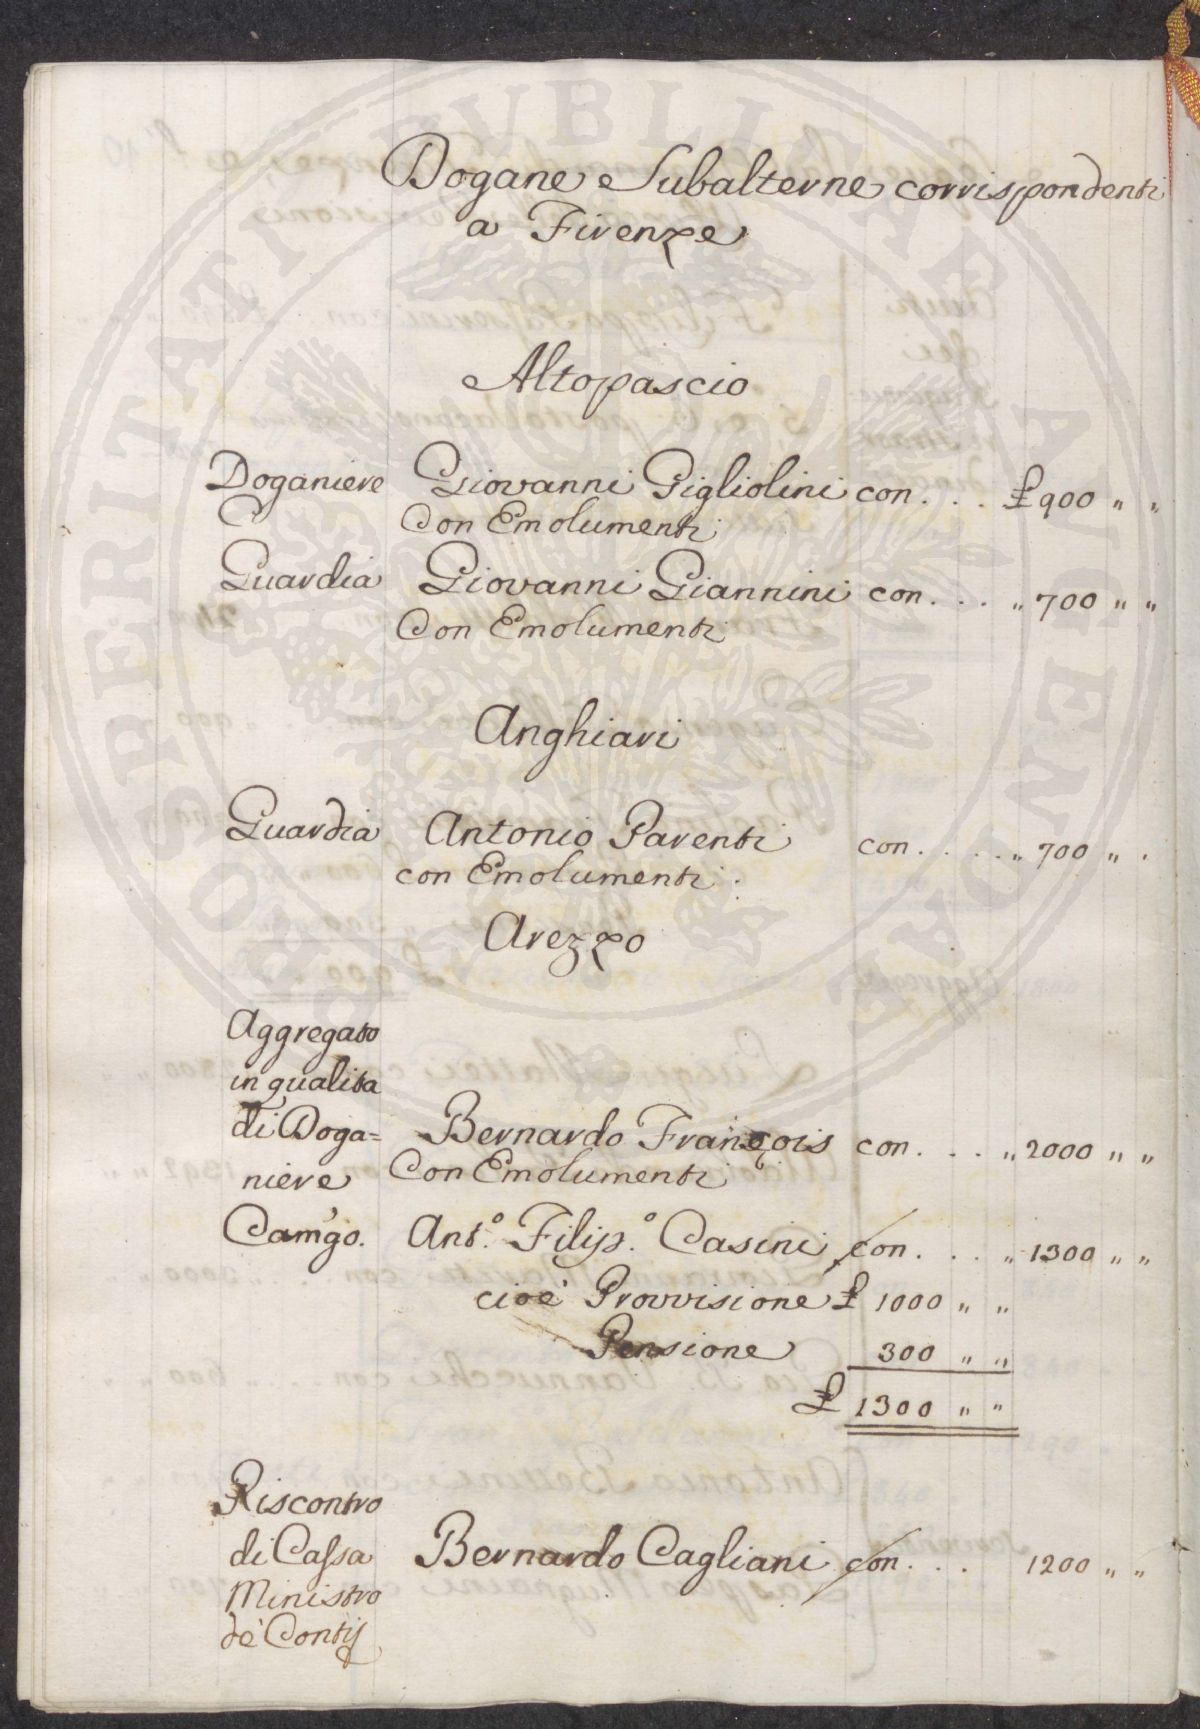 Dogane Subalterne corrispondenti
a Firenze
Altopascio
Doganiere Giovanni Gigliolini con . . . £ 900 " "
Con Emolumenti
Guardia Giovanni Giannini con . . . " 700 " "
Con Emolumenti
Anghiari
Guardia Antonio Parenti con . . . . " 700 " "
con Emolumenti
Arezzo
Aggregato
in qualita
di Doga=
niere
Bernardo François con . . . " 2000 " "
Con Emolumenti
Cam'go. Ant.º Filip.º Casini con . . . " 1300 " "
cioè Provvisione £ 1000 " "
Pensione 300 " "
£ 1300 " "
Riscontro
di Cassa
Ministro
de' Contij
Bernardo Cagliani con . . . 1200 " "
PROSPERITATI PUBLICAE AUGENDAE